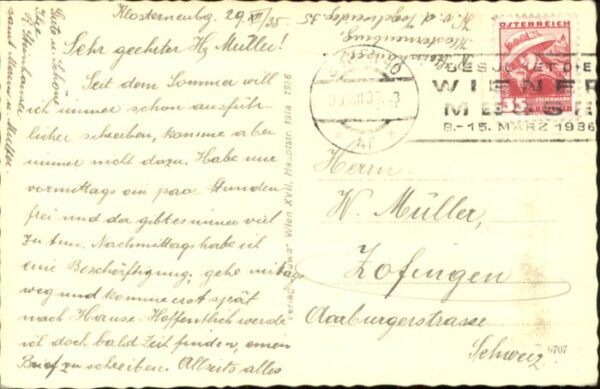 Klosterneubg. 29 XII/35
Sehr geehrter H. Müller.
Seit dem Sommer will
ich immer schon ausführ-
licher schreiben, komme aber
immer nicht dazu. Habe nur
vormittags ein paar Stunden
frei und da gibt es immer viel
zu tun. Nachmittags habe ich
eine Beschäftigung; gehe mittag
weg und komme erst spät
nach Hause. Hoffentlich werde
ich doch bald Zeit finden, einen
Brief zu schreiben. Allseits alles
Gute u. Schöne
Ihr
samt
Klosterneuburg
Verlag Wien XVII, Hauptstr. 1936
ÖSTERREICH
BESUCHET DIE
WIENER
MESSE
8.-15. MÄRZ 1936
Herrn
W. Müller,
Zofingen
Aarburgerstrasse
Schweiz
4707